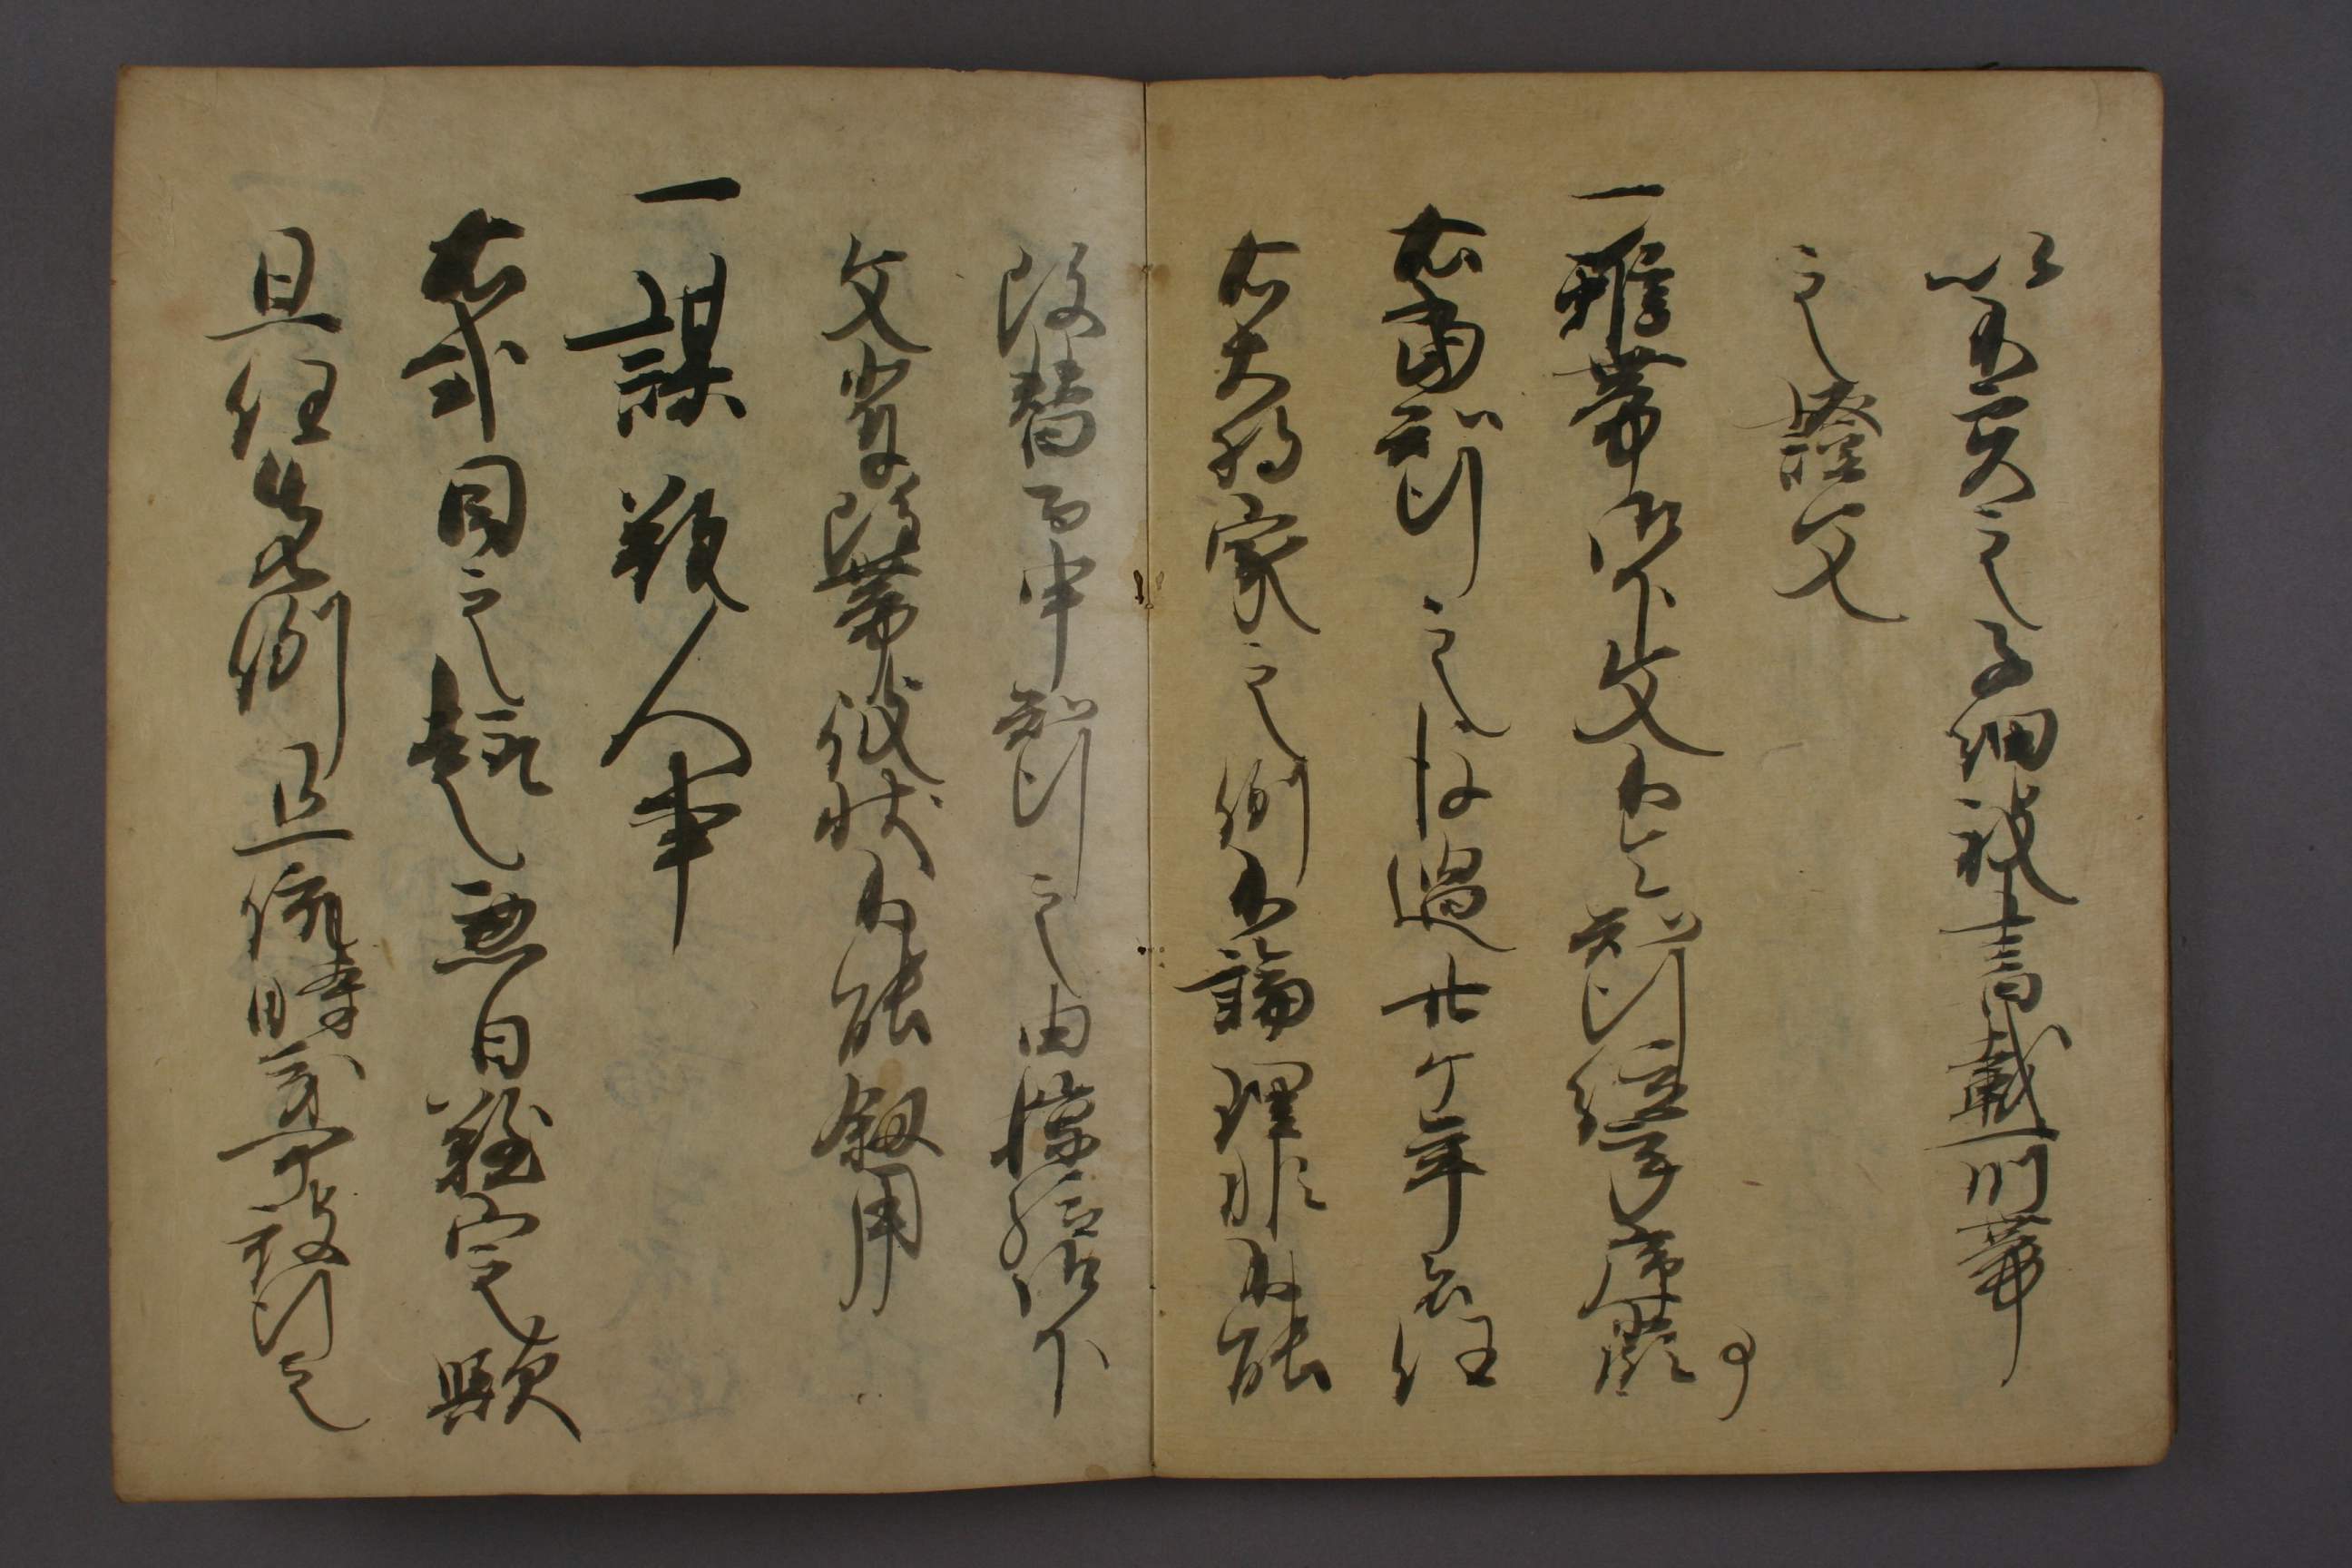 以不実之子細被書載所帯
之證文
一雖帯御下文不令知行経年序所領事
右當知行之後過廿ケ年者任
右大将家之例不論理非不能
改替而申知行之由掠給御下
文輩雖帯彼状不能敘用
一謀叛人事
右式目之趣兼日難定歟
且任先例且依時議可被行之